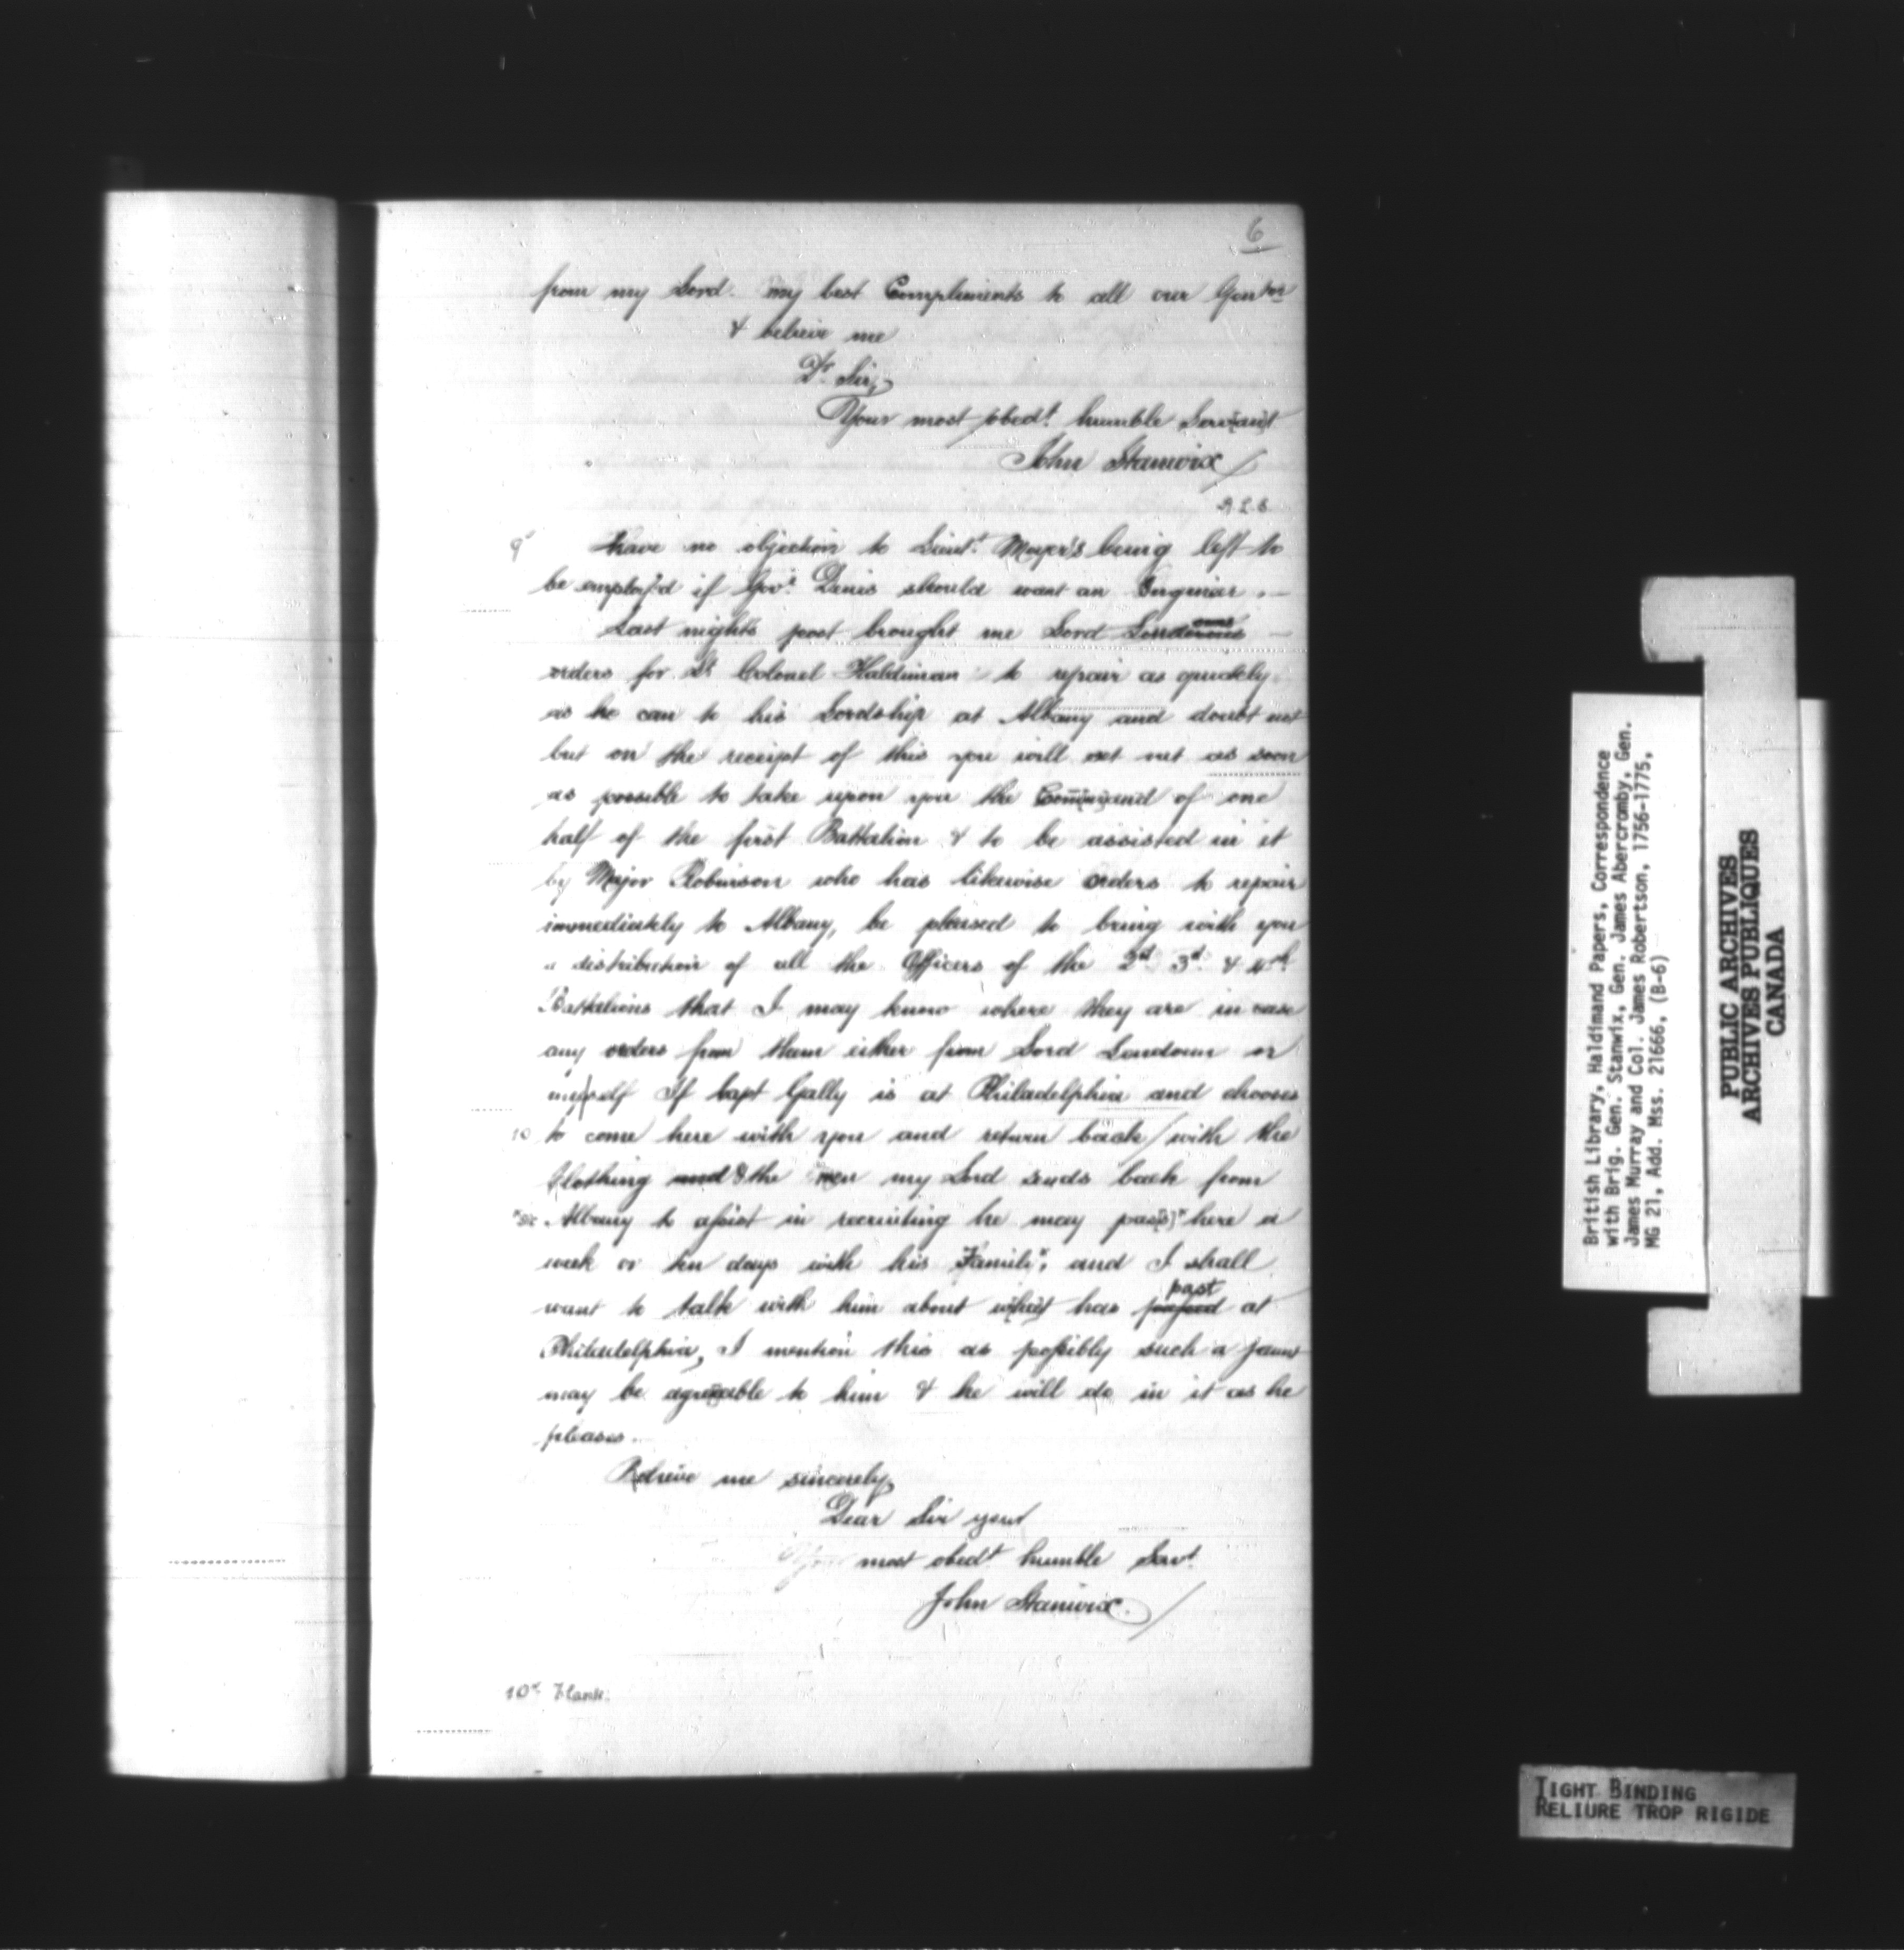 6
from my Lord. my best Compliments to all our Gentn
& believe me
Dr Sir,
Your most obedt. humble Servant
John Stanwix
A L S
9v Have no objection to Lieutt. Mayer's being left to
be employ'd if Govr. Denis should want an Enginier. —
Last nights post brought me Lord
orders for Lt Colonel Haldiman to repair as quickly
as he can to his Lordship at Albany and doubt not
but on the receipt of this you will set out as soon
as possible to take upon you the Command of one
half of the first Battalion & to be assisted in it
by Major Robinson who has likewise orders to repair
immediately to Albany, be pleased to bring with you
a distribution of all the Officers of the 2d 3d. & 4th.
Battalions that I may know where they are in case
any orders from them either from Lord Loudoun or
myself If Capt Gally is at Philadelphia and chooses
10 to come here with you and return back / with the
Clothing and & the men my Lord sends back from
*sic Albany to assist in recruiting he may pas[s]* here a
week or ten days with his Famili*, and I shall
want to talk with him about what has past at
Philadelphia, I mention this as possibly such a jaunt
may be agreeable to him & he will do in it as he
pleases.
Believe me sincerely
Dear Sir your
most obedt. humble Servt.
John Stanwix.
10v Blank.
British Library, Haldimand Papers, Correspondence
with Brig. Gen. Stanwix, Gen. James Abercromby, Gen.
James Murray and Col. James Robertson, 1756-1775,
MG 21, Add. Mss. 21666, (B-6)
PUBLIC ARCHIVES
ARCHIVES PUBLIQUES
CANADA
TIGHT BINDING
RELIURE TROP RIGIDE